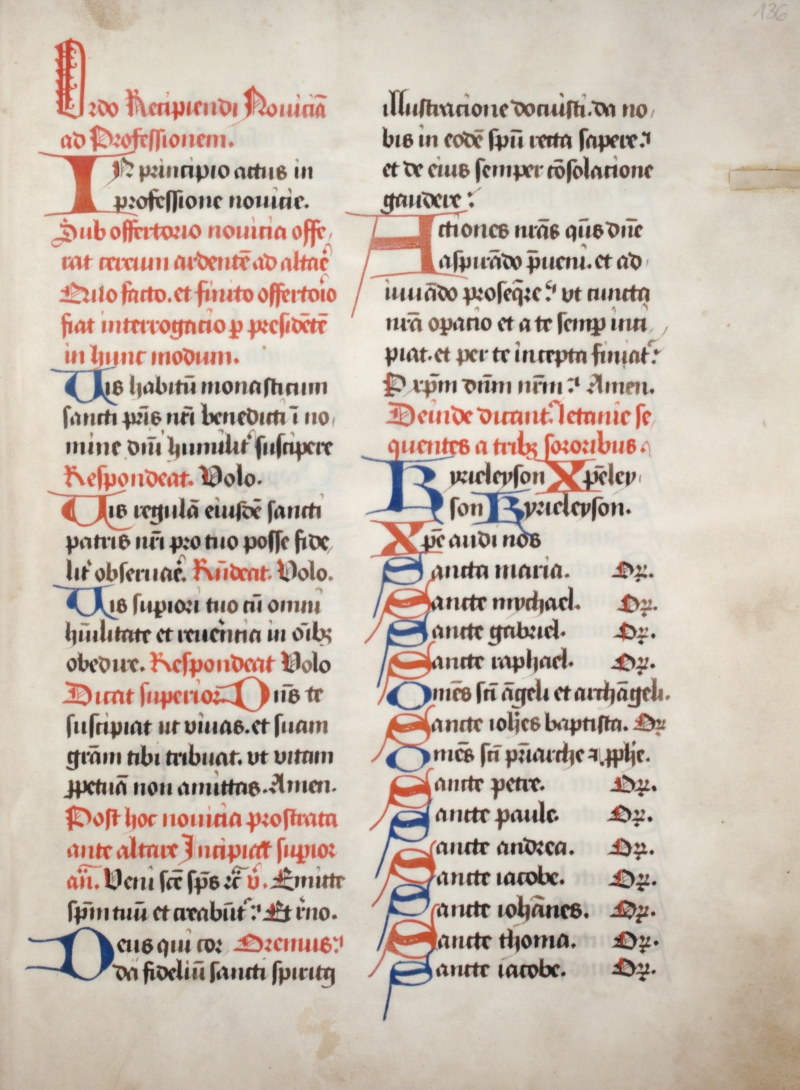 136
Ordo Recipiendi Nouiciā
ad Professionem.
In principio actus in
professione nouicie.
Sub offertorio nouicia offe
rat cereum ardentē ad altaē
Quo facto. et finito offertoıo
fiat interrogacio ꝑ presidētē
in hunc modum.
Uis habitū monasticum
sancti pr̄is nr̄i benedicti ī no
mine dn̄i humilit̾ suscipere
Respondeat. Volo.
Uis regulā eiusdē sancti
patris nr̄i pro tuo posse fide
lit̾ obseruaē. Rn̄deat. Volo.
Uis supiori tuo cū omni
hūilitate et reuēntia in oībꝫ
obedire. Respondeat Volo
Dicat superior. Dn̄s te
suscipiat ut viuas. et suam
grām tibi tribuat. vt vitam
ꝑpetuā non amittas. Amen.
Post hoc nouicia prostrata
ante altare Incipiat supior
an̄. Veni scē sp̄s ⁊c̄ v̄. Emitte
sp̄m tuū et creabūt̾ Et r̄no.
Deus qui cor Oremus
da fideliū sancti spiritꝯ
illustracione docuisti. da no
bis in eodē spū recta sapere
et de eius semper cōsolacione
gaudere
Actiones nrās qūs dn̄e
aspirādo p̄ueni. et ad
iuuādo proseq̄re vt cuncta
nrā oꝑacio et a te semꝑ inci
piat. et per te incepta finiat̾
P xp̄m dn̄m nr̄m Amen.
Deinde dicant̾ letanie se
quentes a tribꝫ sororibus.
Kyrieleyson Xp̄eley
son Kyrieleyson.
Xp̄e audi nos
Sancta maria. Or̄.
Sancte mychael. Or̄.
Sancte gabriel. Or̄.
Sancte raphael. Or̄.
Omēs sc̄i āgeli et archāgeli.
Sancte ioh̄es baptista. Or̄
Omēs sc̄i pr̄iarche ⁊ ꝓph̄e.
Sancte petre. Or̄.
Sancte paule. Or̄.
Sancte andrea. Or̄.
Sancte iacobe. Or̄.
Sancte iohānes. Or̄.
Sancte thoma. Or̄.
Sancte iacobe. Or̄.